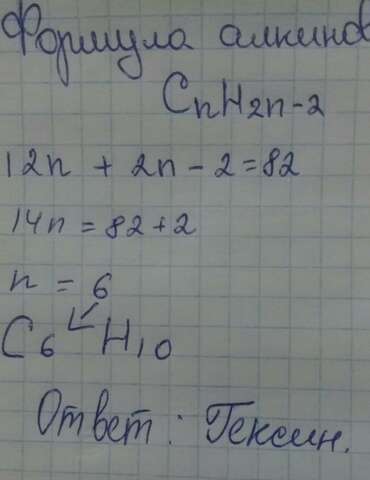 Формула алкинов
CnH2n-2
12n + 2n - 2 = 82
14n = 82 + 2
n = 6
C6 H10
Ответ: Гексин.